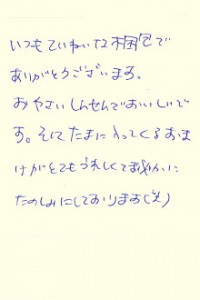 いつもていねいな梱包で
ありがとうございます。
おやさいしんせんでおいしいで
す。そしてたまに入ってくるおま
けがとてもうれしくてひそかに
たのしみにしております(笑)